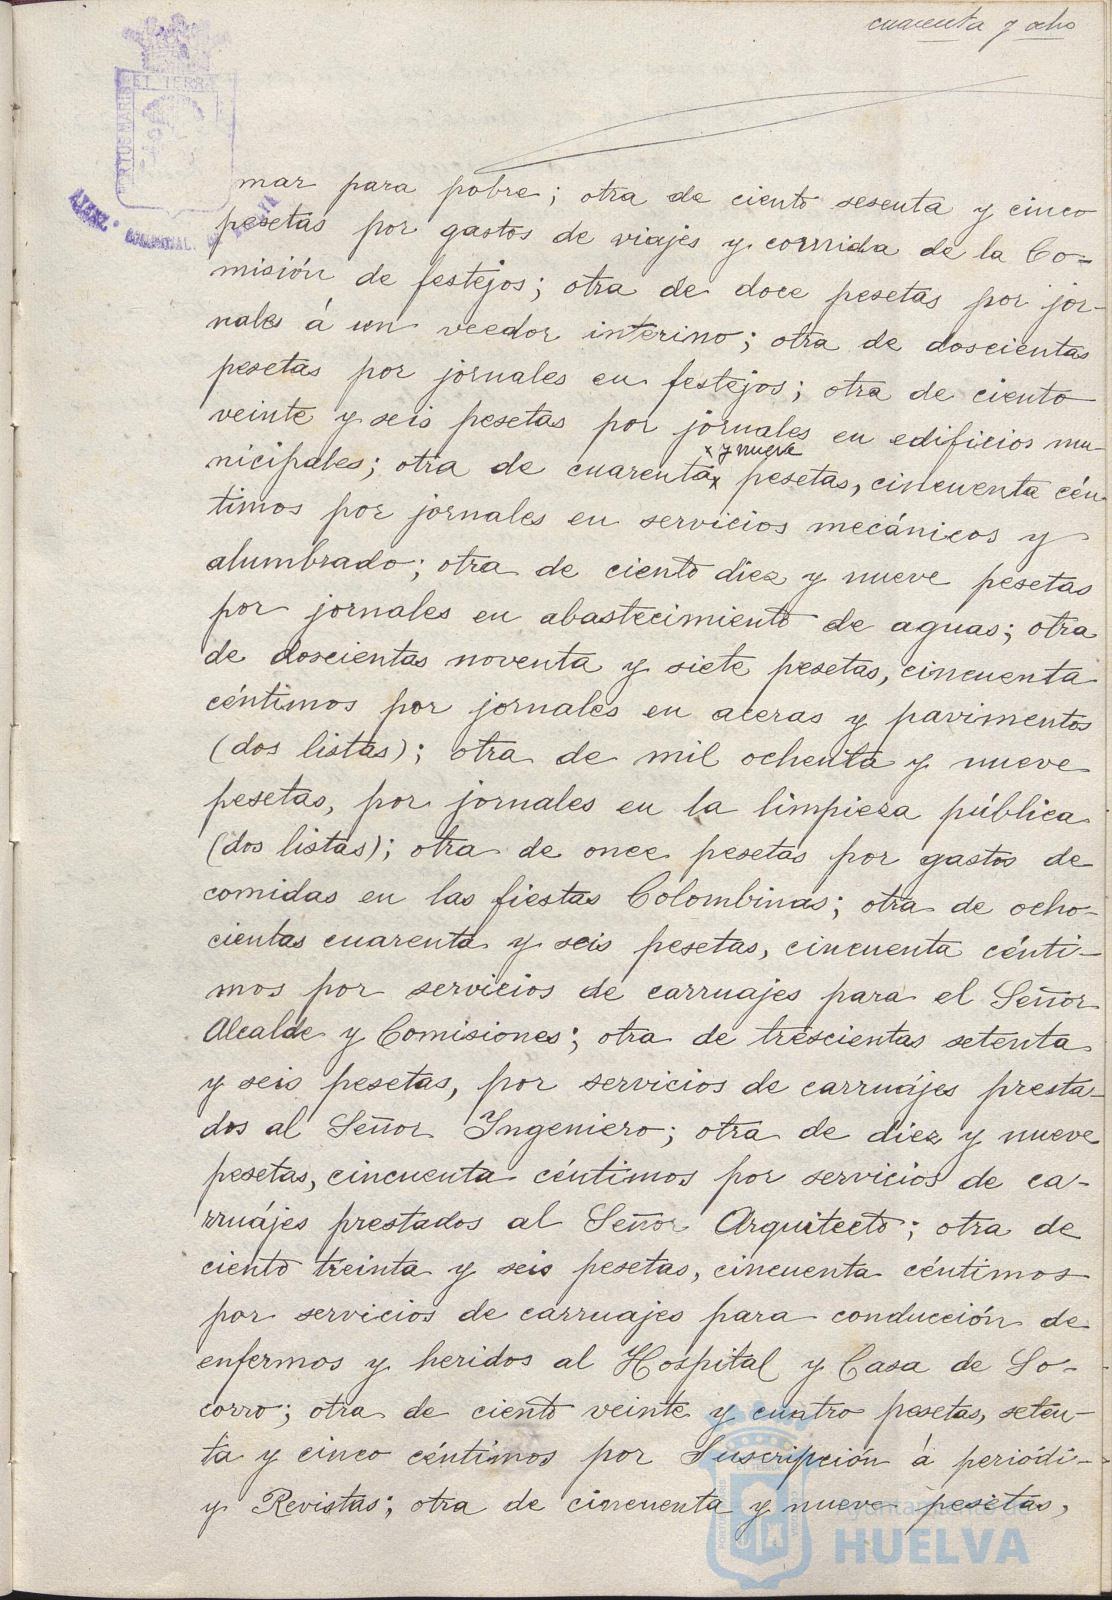 cuarenta y ocho
mar para pobre; otra de ciento sesenta y cinco
pesetas por gastos de viajes y comida de la Co-
misión de festejos; otra de doce pesetas por jor-
nales á un veedor interino; otra de doscientas
pesetas por jornales en festejos; otra de ciento
veinte y seis pesetas por jornales en edificios mu-
x y nueve
nicipales; otra de cuarentax pesetas, cincuenta cén-
timos por jornales en servicios mecánicos y
alumbrado; otra de ciento diez y nueve pesetas
por jornales en abastecimiento de aguas; otra
de doscientas noventa y siete pesetas, cincuenta
céntimos por jornales en aceras y pavimentos
(dos listas); otra de mil ochenta y nueve
pesetas, por jornales en la limpieza pública
(dos listas); otra de once pesetas por gastos de
comidas en las fiestas Colombinas; otra de ocho-
cientas cuarenta y seis pesetas, cincuenta cénti-
mos por servicios de carruajes para el Señor
Alcalde y Comisiones; otra de trescientas setenta
y seis pesetas, por servicios de carruájes presta-
dos al Señor Ingeniero; otra de diez y nueve
pesetas, cincuenta céntimos por servicios de ca-
rruájes prestados al Señor Arquitecto; otra de
ciento treinta y seis pesetas, cincuenta céntimos
por servicios de carruajes para conducción de
enfermos y heridos al Hospital y Casa de So-
corro; otra de ciento veinte y cuatro pesetas, seten-
ta y cinco céntimos por Suscripción á periódi-
y Revistas; otra de cincuenta y nueve pesetas,
Ayuntamiento de
HUELVA